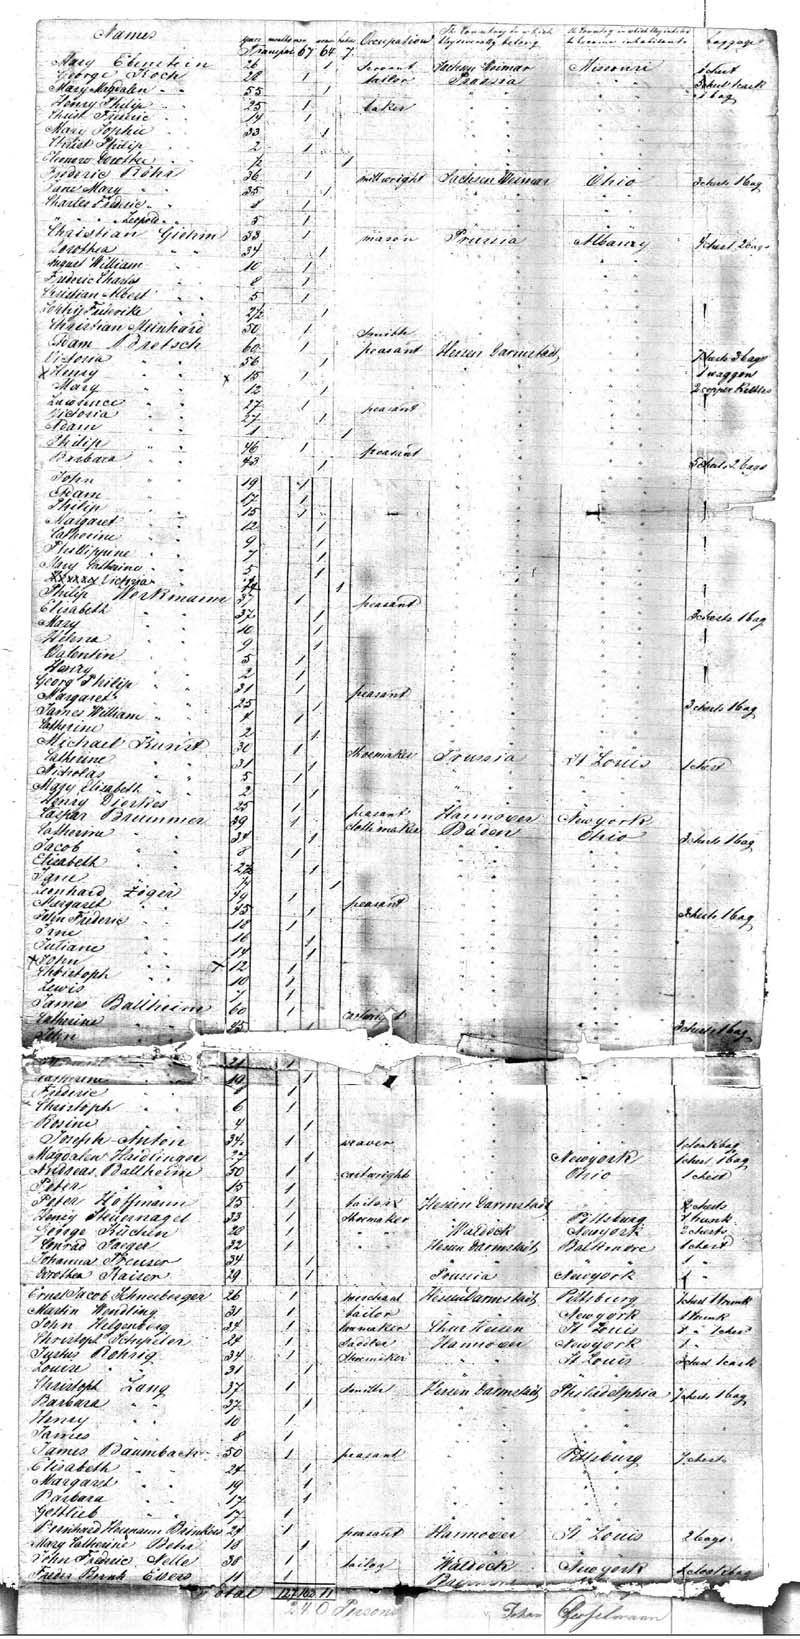 Names years months men women babes Occupation The Country to which they severally belong The Country in which they intend to become inhabitants Luggage
Transport 67 64 7
Mary Ebenstein 26 1 servant Sachsen Weimar Missouri 1 chest
George Koch 28 1 tailor Prussia " 3 chest 1 cask
Mary Magdalen " " 55 1 1 bag
Henry Philip " " 25 1 baker
Christ. Frederic " " 14 1
Mary Sophie " " 33 1
Christ Philip " " 2 1
Eleonore Dorothea " " 1
Frederic Röhr 36 1 millwright Sachsen Weimar Ohio 3 chests 1 bag
Jane Mary " 35 1
Charles Frederic " " 8 1
" " Leopold " " 5 1
Christian Giehm 33 1 mason Prussia Albany 1 chest 2 bags
Dorothea " " 34 1
August William " " 10 1
Frederic Charles " " 8 1
Christian Albert " " 5 1
Friderike " " 1
Christian Meinhard 50 1 smith
Adam Bretsch 60 1 peasant Hessen Darmstadt 7 chests 3 bags
Victoria " 56 1 1 waggon
x Henry " x 15 1 2 copper Kettles
Mary " 12 1
Lawrence " 27 1 peasant
Victoria " 27 1
Adam " 1 1
Philip " 46 1 peasant
Barbara " 43 1 5 chests 2 bags
John " " 19 1
Adam " " 17 1
Philip " " 15 1
Margaret " " 12 1
Catherine " " 9 1
Phillippine " " 7 1
Mary Catherine " " 5 1
Victoria " 1
Philip Workmann 37 1 peasant
Elisabeth " " 37 1 3 chests 1 bag
Mary " " 10 1
Helena " " 9 1
Valentin " " 5 1
Henry " " 2 1
Georg Philip " " 31 1 peasant
Margaret " " 25 1 3 chests 1 bag
James William " " 4 1
Catherine " " 2 1
Michael Kunst 30 1 Shoemaker Prussia St Louis 1 chest
Catherine " " 31 1
Nicholas " " 5 1
Mary Elizabeth " " 2 1
Henry Dierkes 25 1 peasant Hannover Newyork
Caspar Brummer 39 1 clothmaker Baden Ohio 3 chests 1 bag
Catherine " " 34 1
Jacob " " 8 1
Elisabeth " " 1
Jane " " 1
Leonhard Zöger 44 1 peasant
Margaret " " 45 1 3 chests 1 bag
John Frederic " " 18 1
Jane " " 16 1
Juliane " " 14 1
x John " " x 12 1
Christoph " " 10 1
Lewis " " 7 1
James Ballheim 60 1
Catherine " " 45 1 3 chests 1 bag
John
21 1
Catherine " 19 1
Frederic " " 1
Christoph " " 6 1
Rosine " " 4 1
Joseph Anton 34 1 weaver
Magdalen Haidlinger 1 Newyork 1 chest 1 bag
Andreas Ballheim 50 1 cartwright Ohio 1 chest
Peter " " 15 1
Peter Hoffmann 25 1 tailor Hessen Darmstadt " 2 chests
Henry Steuernagel 33 1 Shoemaker " " Pittsburg 1 trunk
George Küchen 28 1 " Waldeck Newyork 2 chests
Conrad Jaeger 32 1 " Hessen Darmstadt Baltimore 1 chest
Johanna Preuser 34 1 1 "
Dorothea Kaiser 29 1 Prussia Newyork 1 "
Ernst Jacob Schneeberger 26 1 merchant Hessen Darmstadt Pittsburg 1 chest 1 trunk
Martin Windling 31 1 tailor " Newyork 1 trunk
John Helgenberg 34 1 Chur Hessen St Louis 1 " 1 chest
Christoph 24 1 Sadtler Hannover Newyork 1 "
Justus Rohrig 34 1 Shoemaker " " St Louis 3 chest 1 cask
Louise " " 31 1
Christoph Lang 37 1 smith Hessen Darmstadt Philadelphia 7 chests 1 bag
Barbara " " 37 1
Henry " " 10 1
James " " 8 1
James Baumbach 50 1 peasant Pittsburg 7 chests
Elisabeth " " 24 1
Margaret " " 19 1
Barbara " " 17 1
Gottlieb " " 17 1
Bernhard Hermann Brinkers 24 1 peasant Hannover St Louis 2 bags
Mary Catherine Behr 18 1
John Frederic Nelle 38 1 tailor Waldeck Newyork
Eilers 11 1
Total 127 102 11
240 Persons Johan